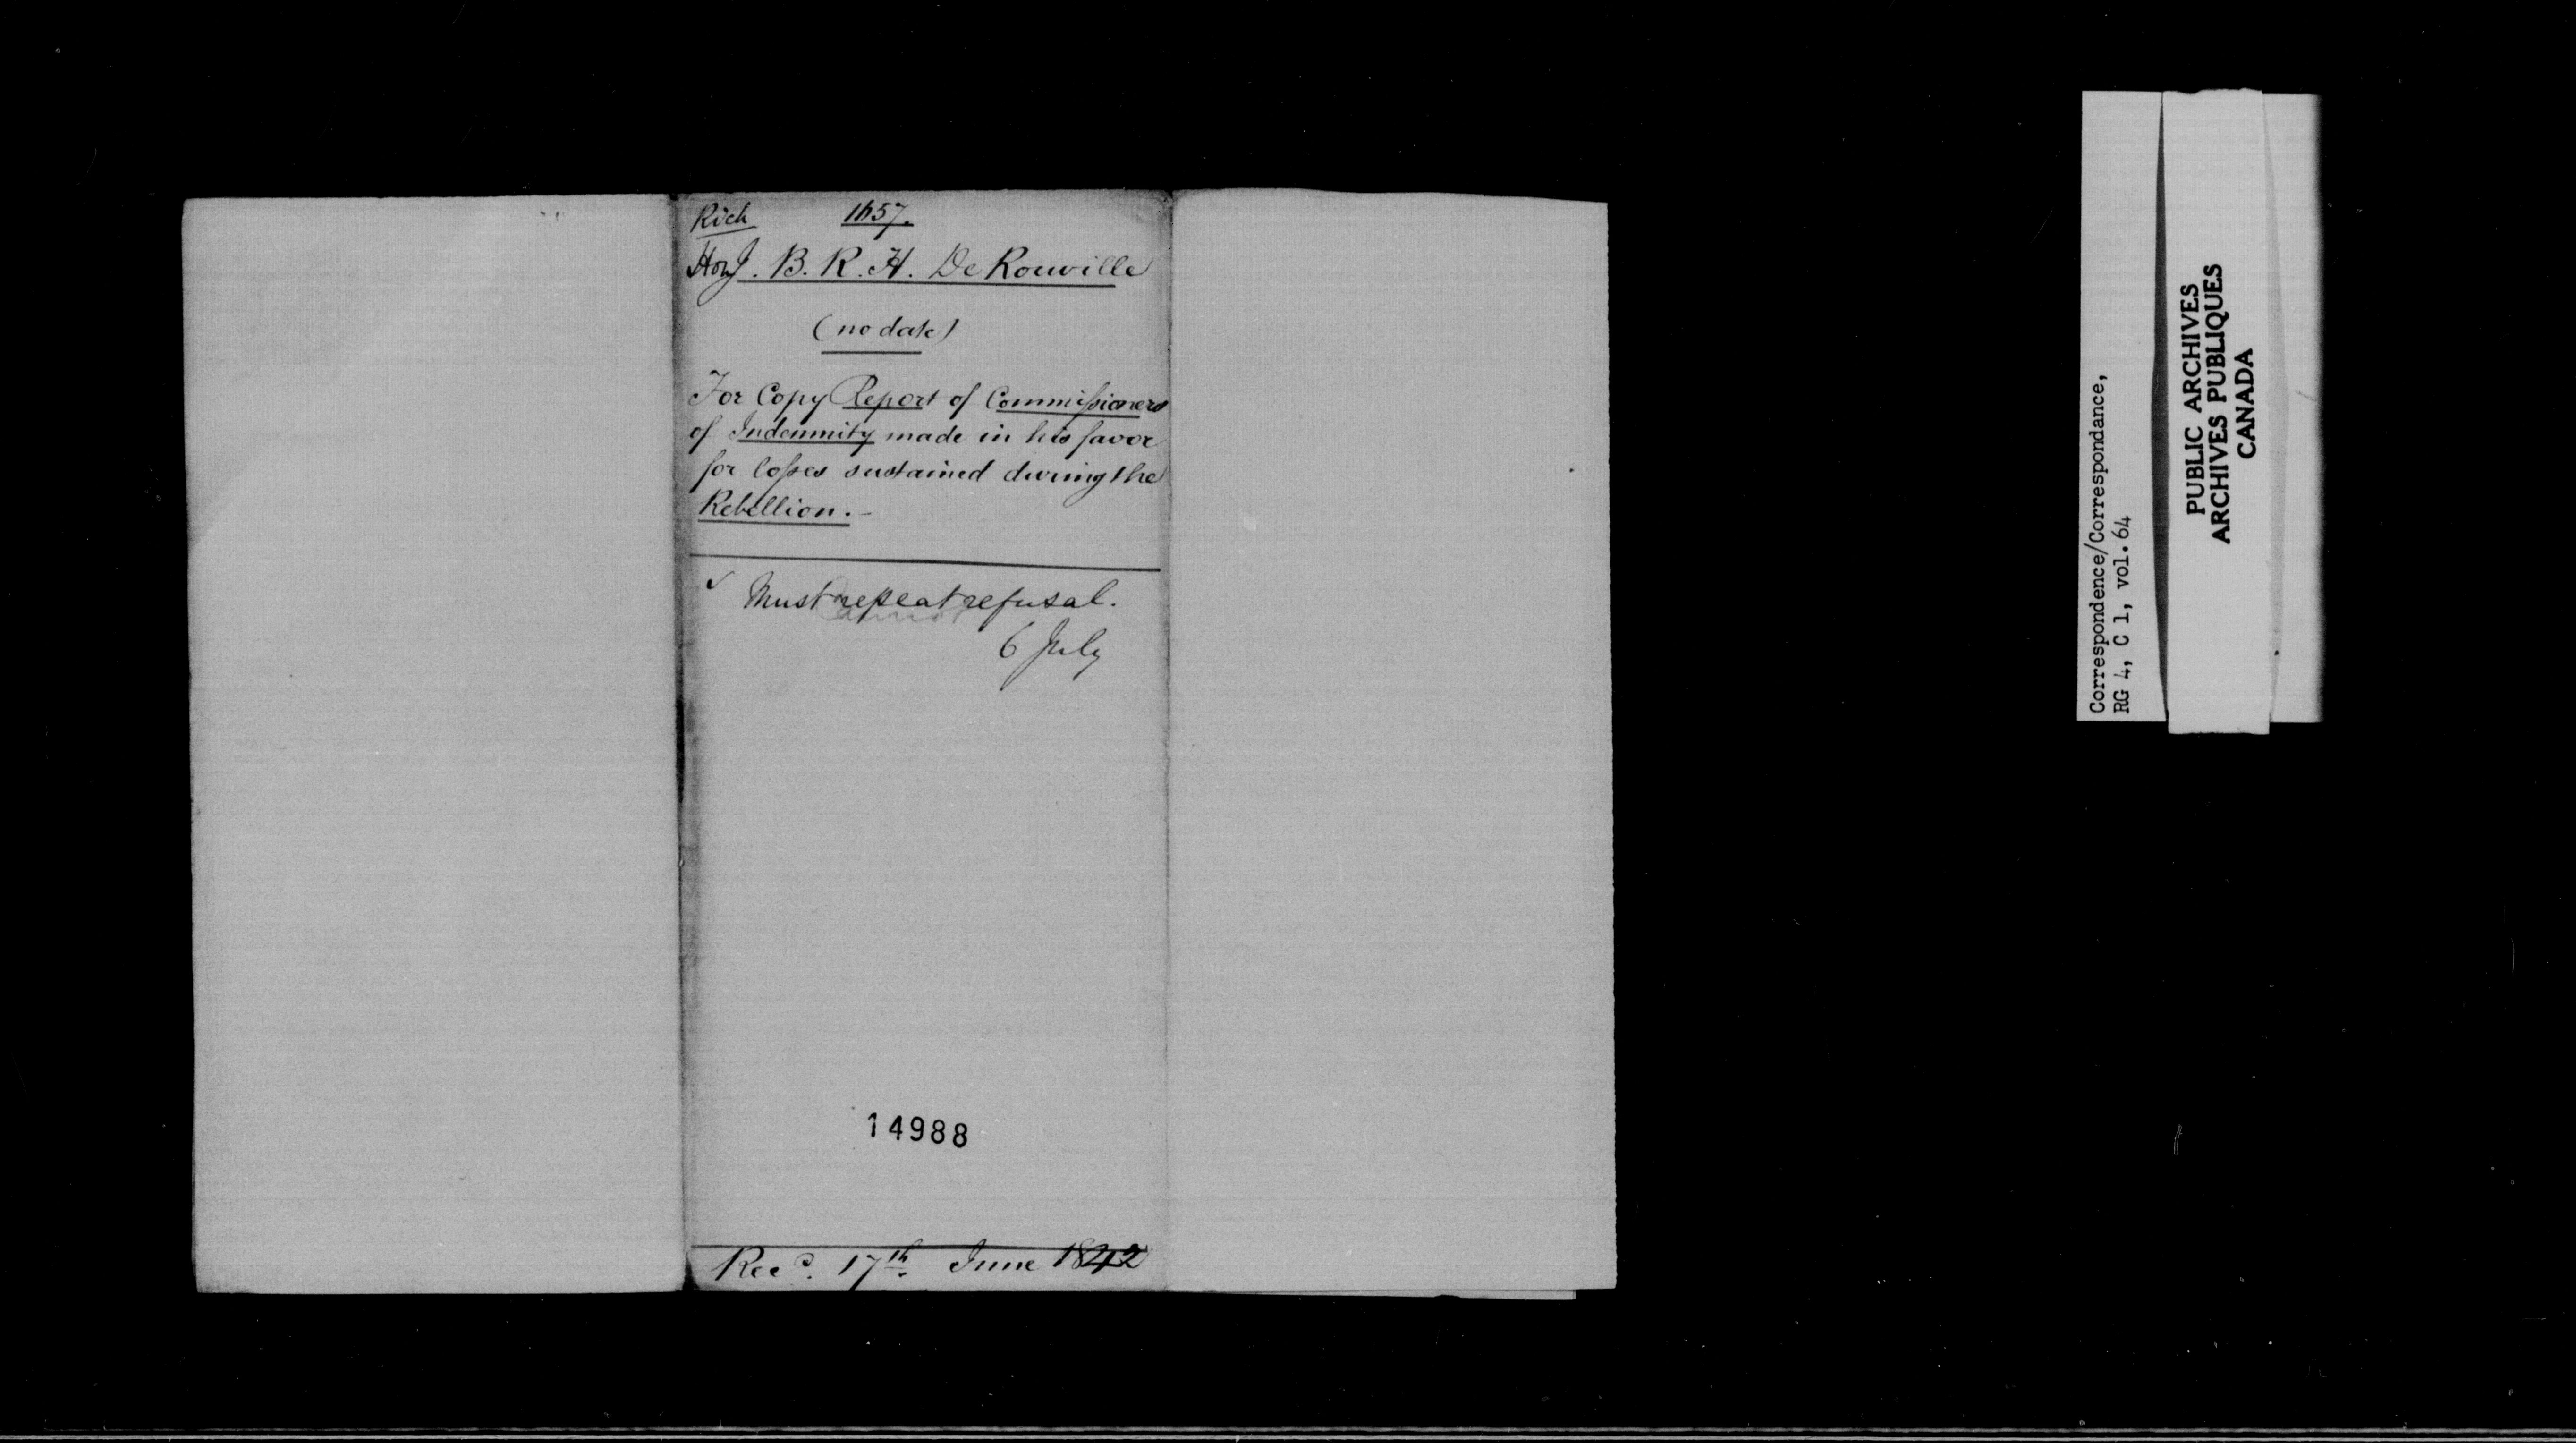 Rich 1657.
Hon J. B. R. H. De Rouville
(no date)
For Copy Report of Commissioners
of Indemnity made in his favor
for losses sustained during the
Rebellion.-
✓ Must repeat refusal.
6 July
14988
Recd. 17th. June 1842
Correspondence/Correspondance,
RG 4, C 1, vol.64
PUBLIC ARCHIVES
ARCHIVES PUBLIQUES
CANADA